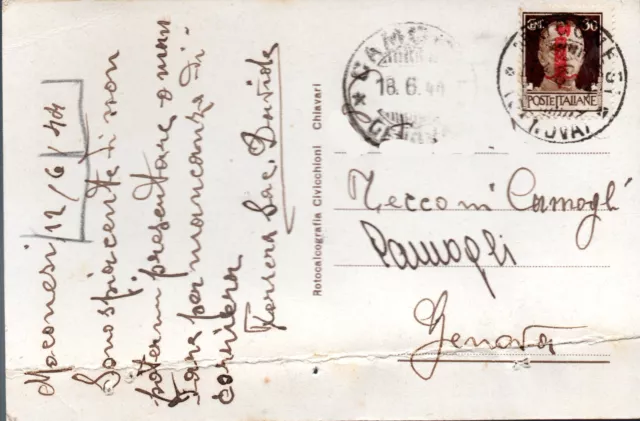 Moconesi 12/6/44
Sono spiacente di non
potermi presentare o man
dare per mancanza di
corriera
Sac. Davide
Rotocalcografia Civicchioni Chiavari
CENT. 30
POSTE ITALIANE
18.6.44
Camogli
Camogli
Genova